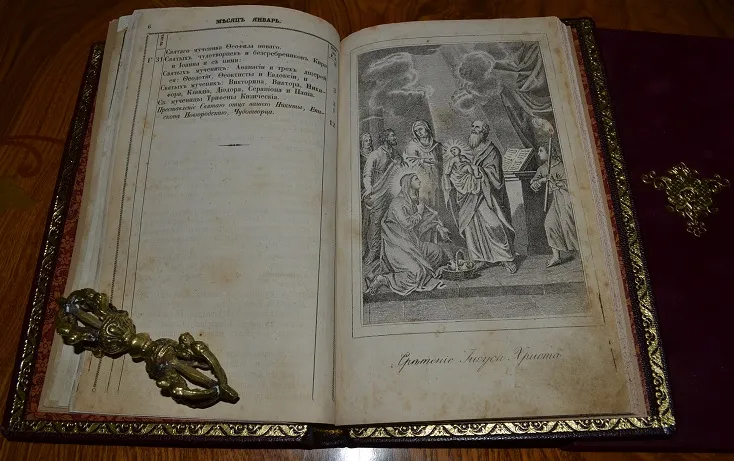 6 МѢСЯЦЪ ЯНВАРЬ.
Святаго мученика Ѳеофила новаго.
31 Святыхъ чудотворцевъ и безсребренниковъ Кира
и Іоанна и съ ними:
Святыхъ мученицъ: Аѳанасіи и трехъ дщерей
ея: Ѳеодотіи, Ѳеоктисты и Евдоксіи, и
Святыхъ мученикъ: Викторина, Виктора, Ники-
фора, Клавдіа, Діодора, Серапіона и Папіа.
Св. мученицы Трифены Кизическія.
Преставленіе Святаго отца нашего Никиты, Епи-
скопа Новгородскаго, Чудотворца.
Срѣтеніе Іисуса Христа